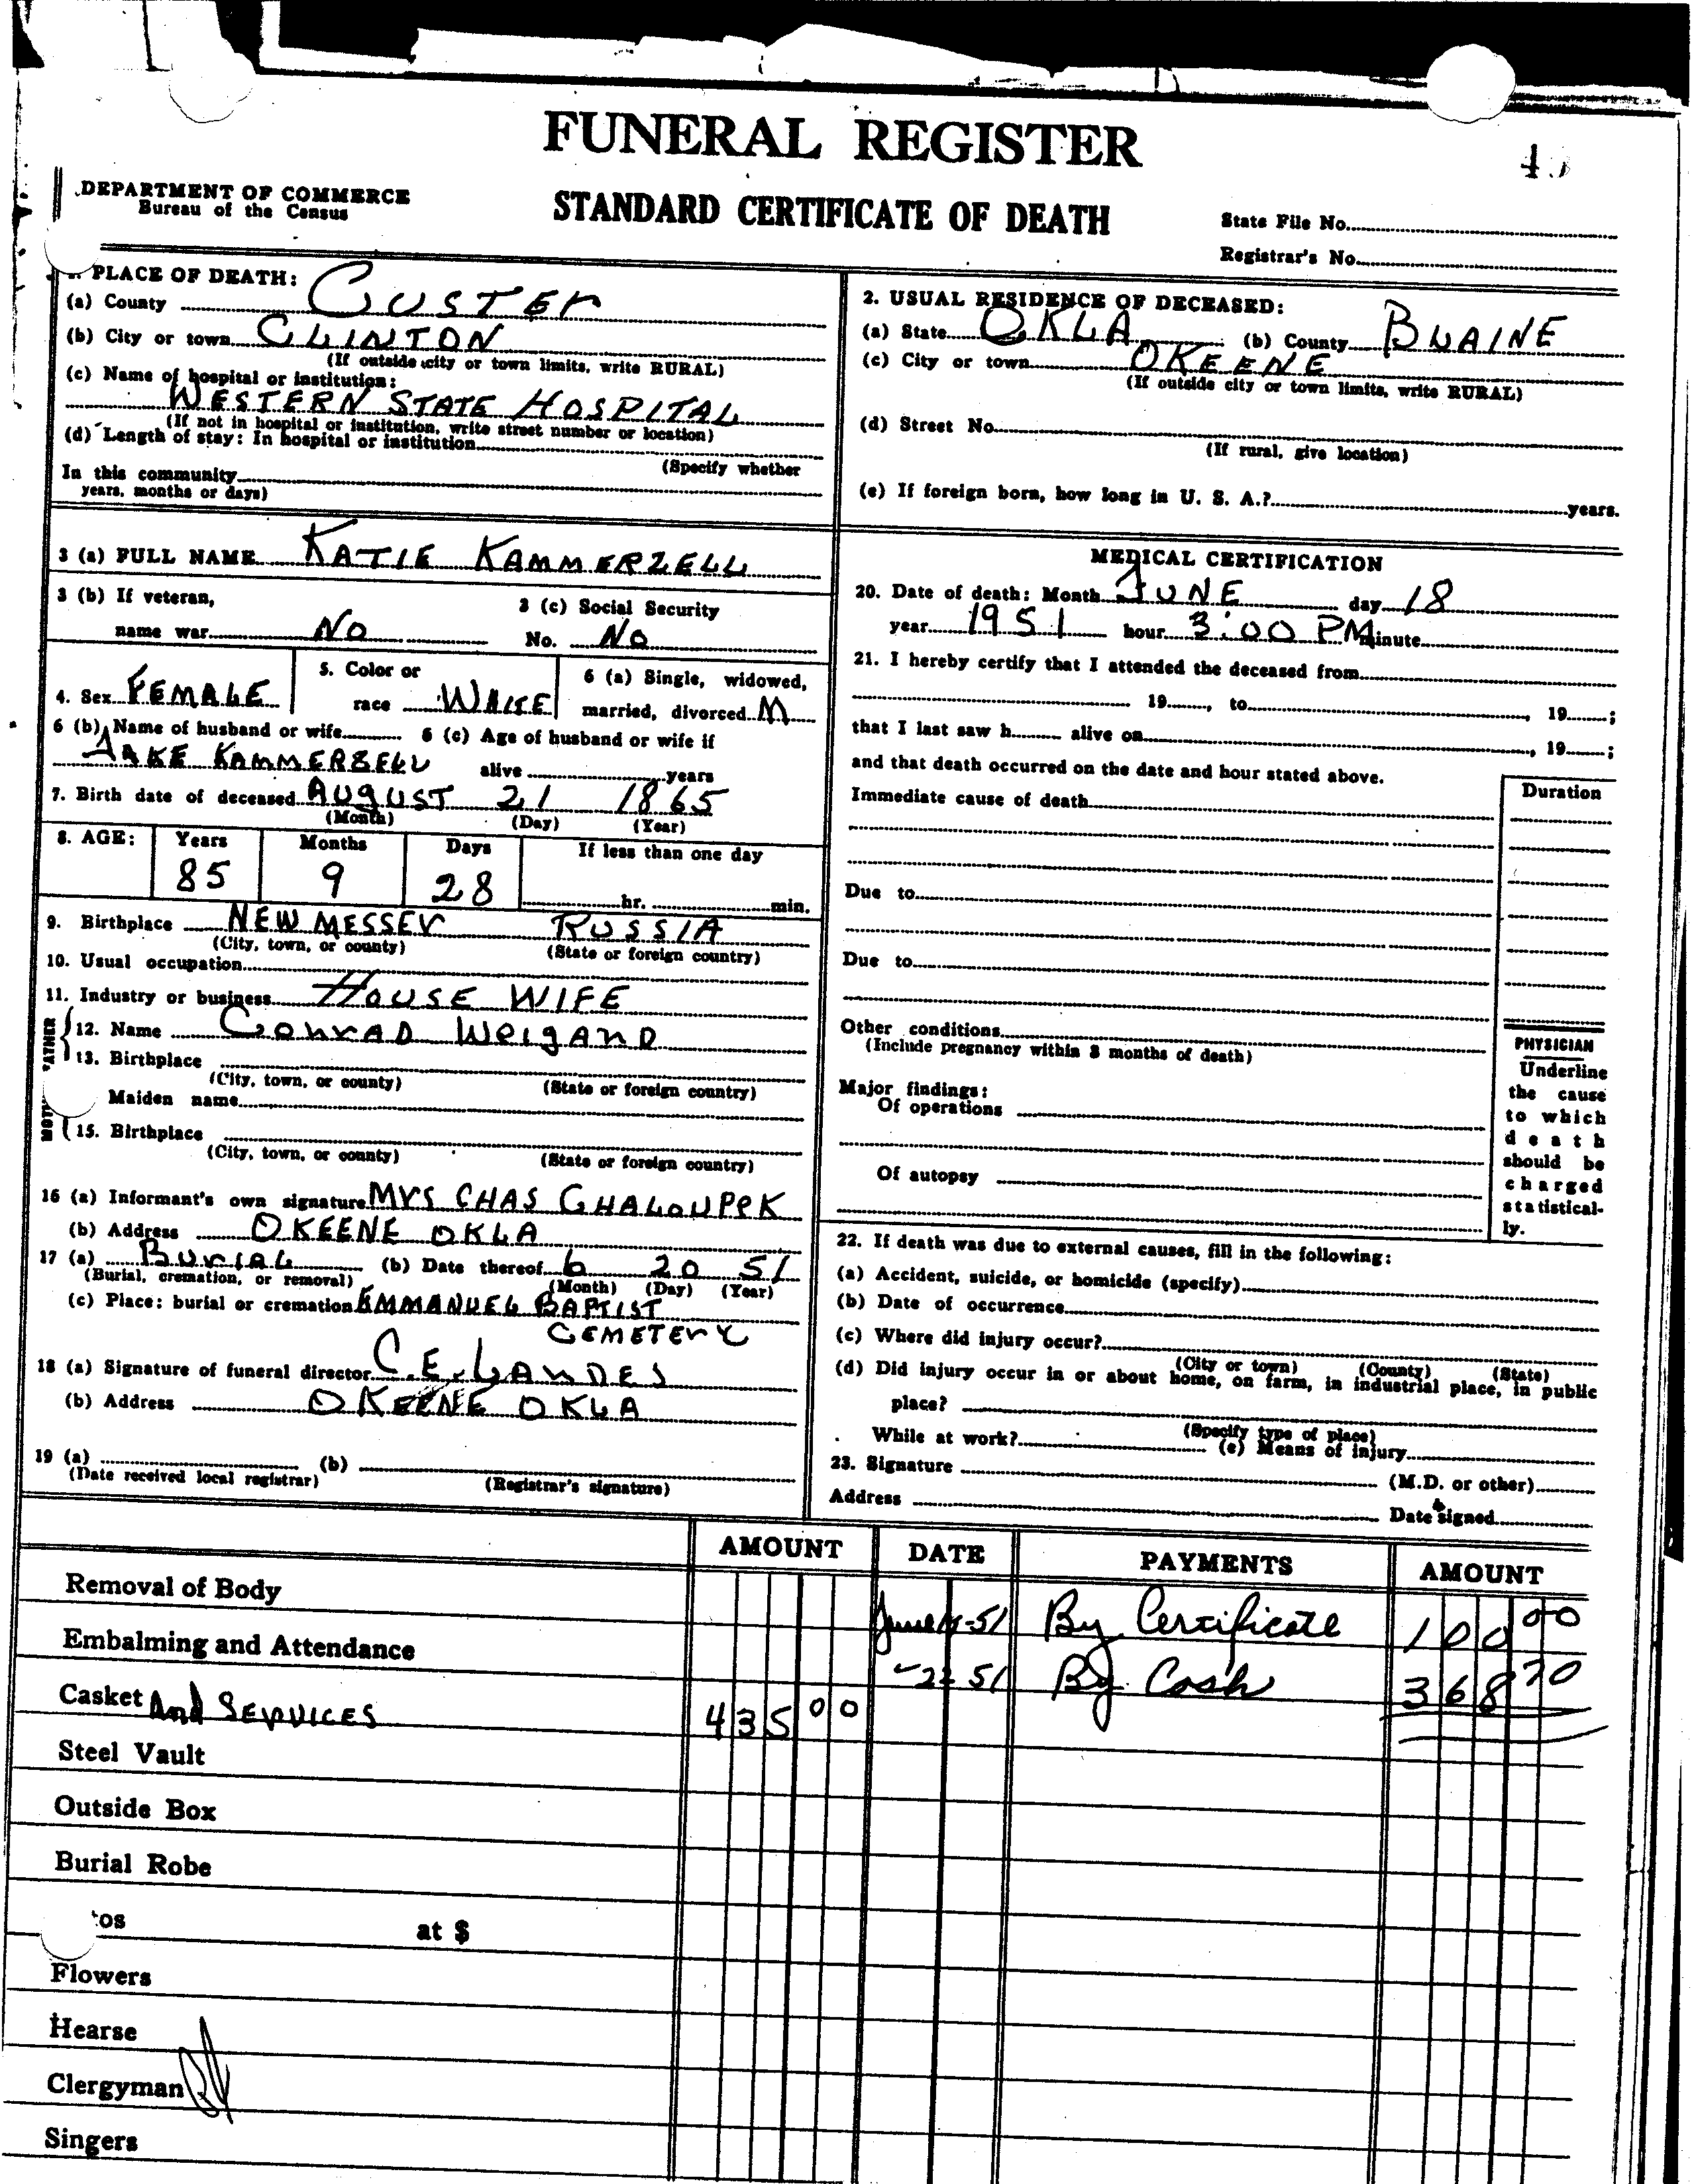 FUNERAL REGISTER
DEPARTMENT OF COMMERCE
Bureau of the Census
STANDARD CERTIFICATE OF DEATH
State File No.
Registrar's No.
PLACE OF DEATH:
(a) County CUSTER
(b) City or town CLINTON
(If outside city or town limits, write RURAL)
(c) Name of hospital or institution:
WESTERN STATE HOSPITAL
(If not in hospital or institution, write street number or location)
(d) Length of stay: In hospital or institution
(Specify whether
In this community
years, months or days)
2. USUAL RESIDENCE OF DECEASED:
(a) State OKLA (b) County BLAINE
(c) City or town OKEENE
(If outside city or town limits, write RURAL)
(d) Street No.
(If rural, give location)
(e) If foreign born, how long in U. S. A.? years.
3 (a) FULL NAME KATIE KAMMERZELL
3 (b) If veteran,
name war NO
3 (c) Social Security
No. NO
4. Sex FEMALE
5. Color or
race WHITE
6 (a) Single, widowed,
married, divorced M
6 (b) Name of husband or wife
JAKE KAMMERZELL
6 (c) Age of husband or wife if
alive years
7. Birth date of deceased AUGUST 21 1865
(Month) (Day) (Year)
8. AGE: Years Months Days If less than one day
85 9 28 hr. min.
9. Birthplace NEW MESSER RUSSIA
(City, town, or county) (State or foreign country)
10. Usual occupation
11. Industry or business HOUSE WIFE
FATHER
12. Name CONRAD WEIGAND
13. Birthplace
(City, town, or county) (State or foreign country)
Maiden name
15. Birthplace
(City, town, or county) (State or foreign country)
16 (a) Informant's own signature MRS CHAS
(b) Address OKEENE OKLA
17 (a) BURIAL (b) Date thereof 6 20 51
(Burial, cremation, or removal) (Month) (Day) (Year)
(c) Place: burial or cremation EMMANUEL BAPTIST
CEMETERY
18 (a) Signature of funeral director C.E. LANDES
(b) Address OKEENE OKLA
19 (a) (b)
(Date received local registrar) (Registrar's signature)
MEDICAL CERTIFICATION
20. Date of death: Month JUNE day 18
year 1951 hour 3:00 PM minute
21. I hereby certify that I attended the deceased from
19 , to , 19 ;
that I last saw h alive on , 19 ;
and that death occurred on the date and hour stated above.
Immediate cause of death
Duration
Due to
Due to
Other conditions
(Include pregnancy within 3 months of death)
Major findings:
Of operations
Of autopsy
PHYSICIAN
Underline
the cause
to which
death
should be
charged
statistical-
ly.
22. If death was due to external causes, fill in the following:
(a) Accident, suicide, or homicide (specify)
(b) Date of occurrence
(c) Where did injury occur?
(City or town) (County) (State)
(d) Did injury occur in or about home, on farm, in industrial place, in public
place?
(Specify type of place)
While at work? (e) Means of injury
23. Signature (M.D. or other)
Address Date signed
AMOUNT DATE PAYMENTS AMOUNT
Removal of Body
June -51 By Certificate 100 00
Embalming and Attendance
-22 51 By Cash 368 70
Casket And SERVICES 435 00
Steel Vault
Outside Box
Burial Robe
at $
Flowers
Hearse
Clergyman
Singers